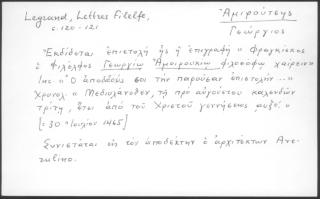 Legrand, Lettres Filelfe,
c. 120-121
Ἀμιρούτσης
Γεώργιος
Ἐκδίδεται ἐπιστολὴ ἧς ἡ ἐπιγραφὴ « Φραγκίσκος
ὁ Φιλέλφης Γεωργίῳ Ἀμοιρουκίῳ φιλοσόφῳ χαίρειν »
Inc. « Ὁ ἀποδιδούς σοι τὴν παροῦσαν ἐπιστολήν... »
Χρονολ. « Μεδιολάνοθεν, τῇ πρὸ αὐγούστου καλανδῶν
τρίτῃ, ἔτει ἀπὸ τοῦ Χριστοῦ γεννήσεως ,αυξε΄. »
[= 30 Ἰουλίου 1465]
Συνιστᾶται εἰς τὸν ἀποδέκτην ὁ ἀρχιτέκτων Ave-
rulino.